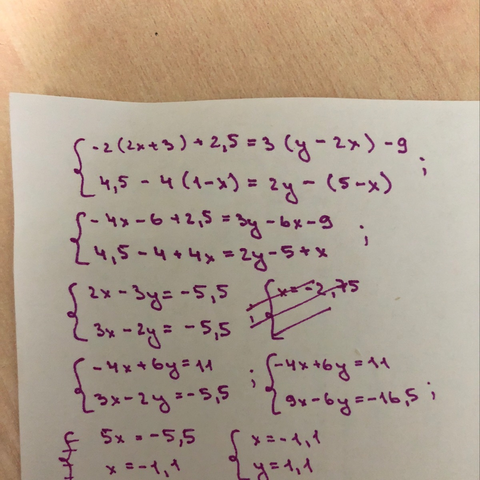 -2(2x+3)+2,5=3(y-2x)-9
4,5-4(1-x)=2y-(5-x) ;
-4x-6+2,5=3y-6x-9
4,5-4+4x=2y-5+x ;
2x-3y=-5,5
3x-2y=-5,5 ; x=-2,75
-4x+6y=11
3x-2y=-5,5 ; -4x+6y=11
9x-6y=-16,5 ;
5x=-5,5
x=-1,1
x=-1,1
y=1,1